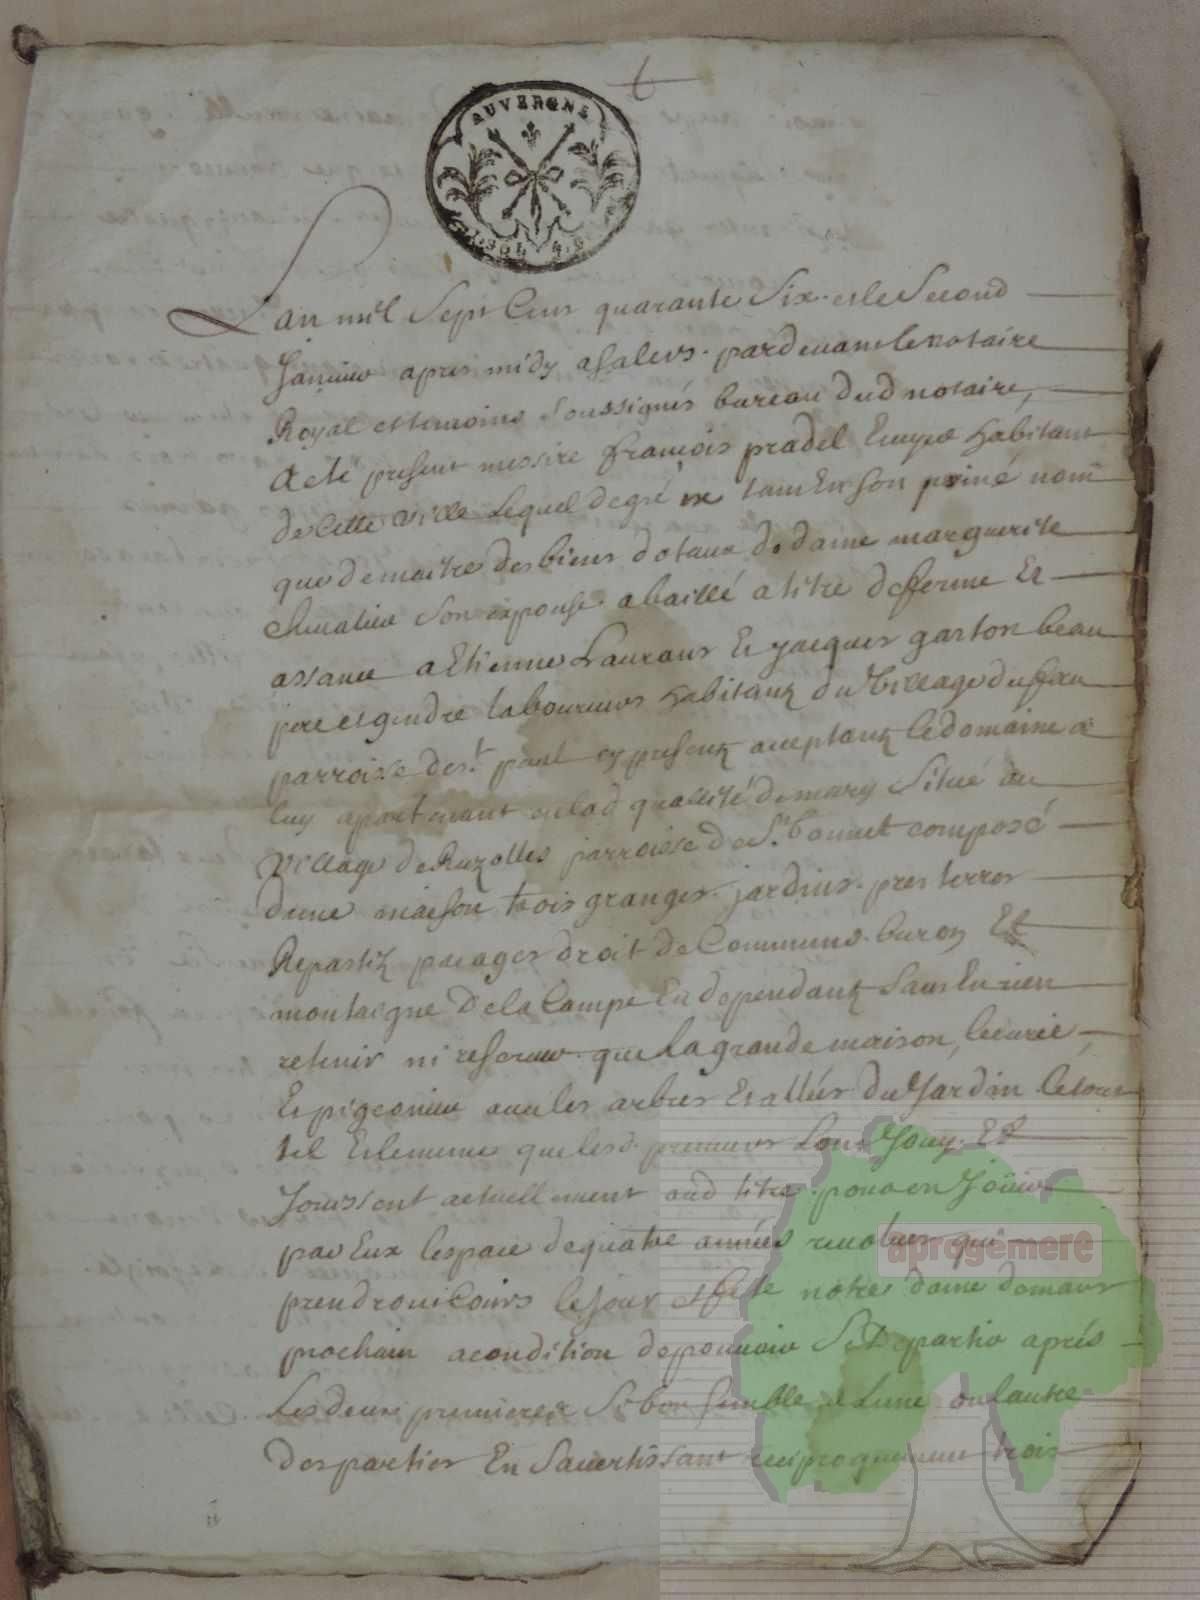 AUVERGNE
Lan mil Sept Cens quarante Six et le Second
Janvier apres midy a Salers pardevant le notaire
Royal et temoins Soussignés bureau dud notaire,
a eté present messire françois pradel Ecuyer habitant
de Cette Ville Lequel de gré tant En Son privé nom
que de maitre des biens dotaux de dame marguerite
Chevalier Son epouse a baillé a titre de ferme Et
assance a Etienne Laurans Et jacques garton beau
pere et gendre laboureurs habitans du Village du frau
parroisse de St paul cy presents aceptans le domaine a
luy apartenant en lad quallité de mary Situé au
Village de Ruzolles parroisse de St bonnet composé
dune maison trois granges jardins pres terres
Repastils pacages droit de Communs buron Et
montaigne De la Campe En dependants Sans En rien
retenir ni reserver que la grande maison, lecurie,
Et pigeonier avec les arbres Et allées du Jardin le tout
tel Et le meme que lesd preneurs Lont Jouy Et
Jouissent actuellement aud titre pour en Joüir
par Eux lespace de quatre années revolues qui
prendront Cours le jour et fete notre dame de mars
prochain a condition de pouvoir Se Departir aprés
Les deux premieres Si bon Semble a Lune ou lautre
des parties En Savertissant reciproquement trois
aprogemere